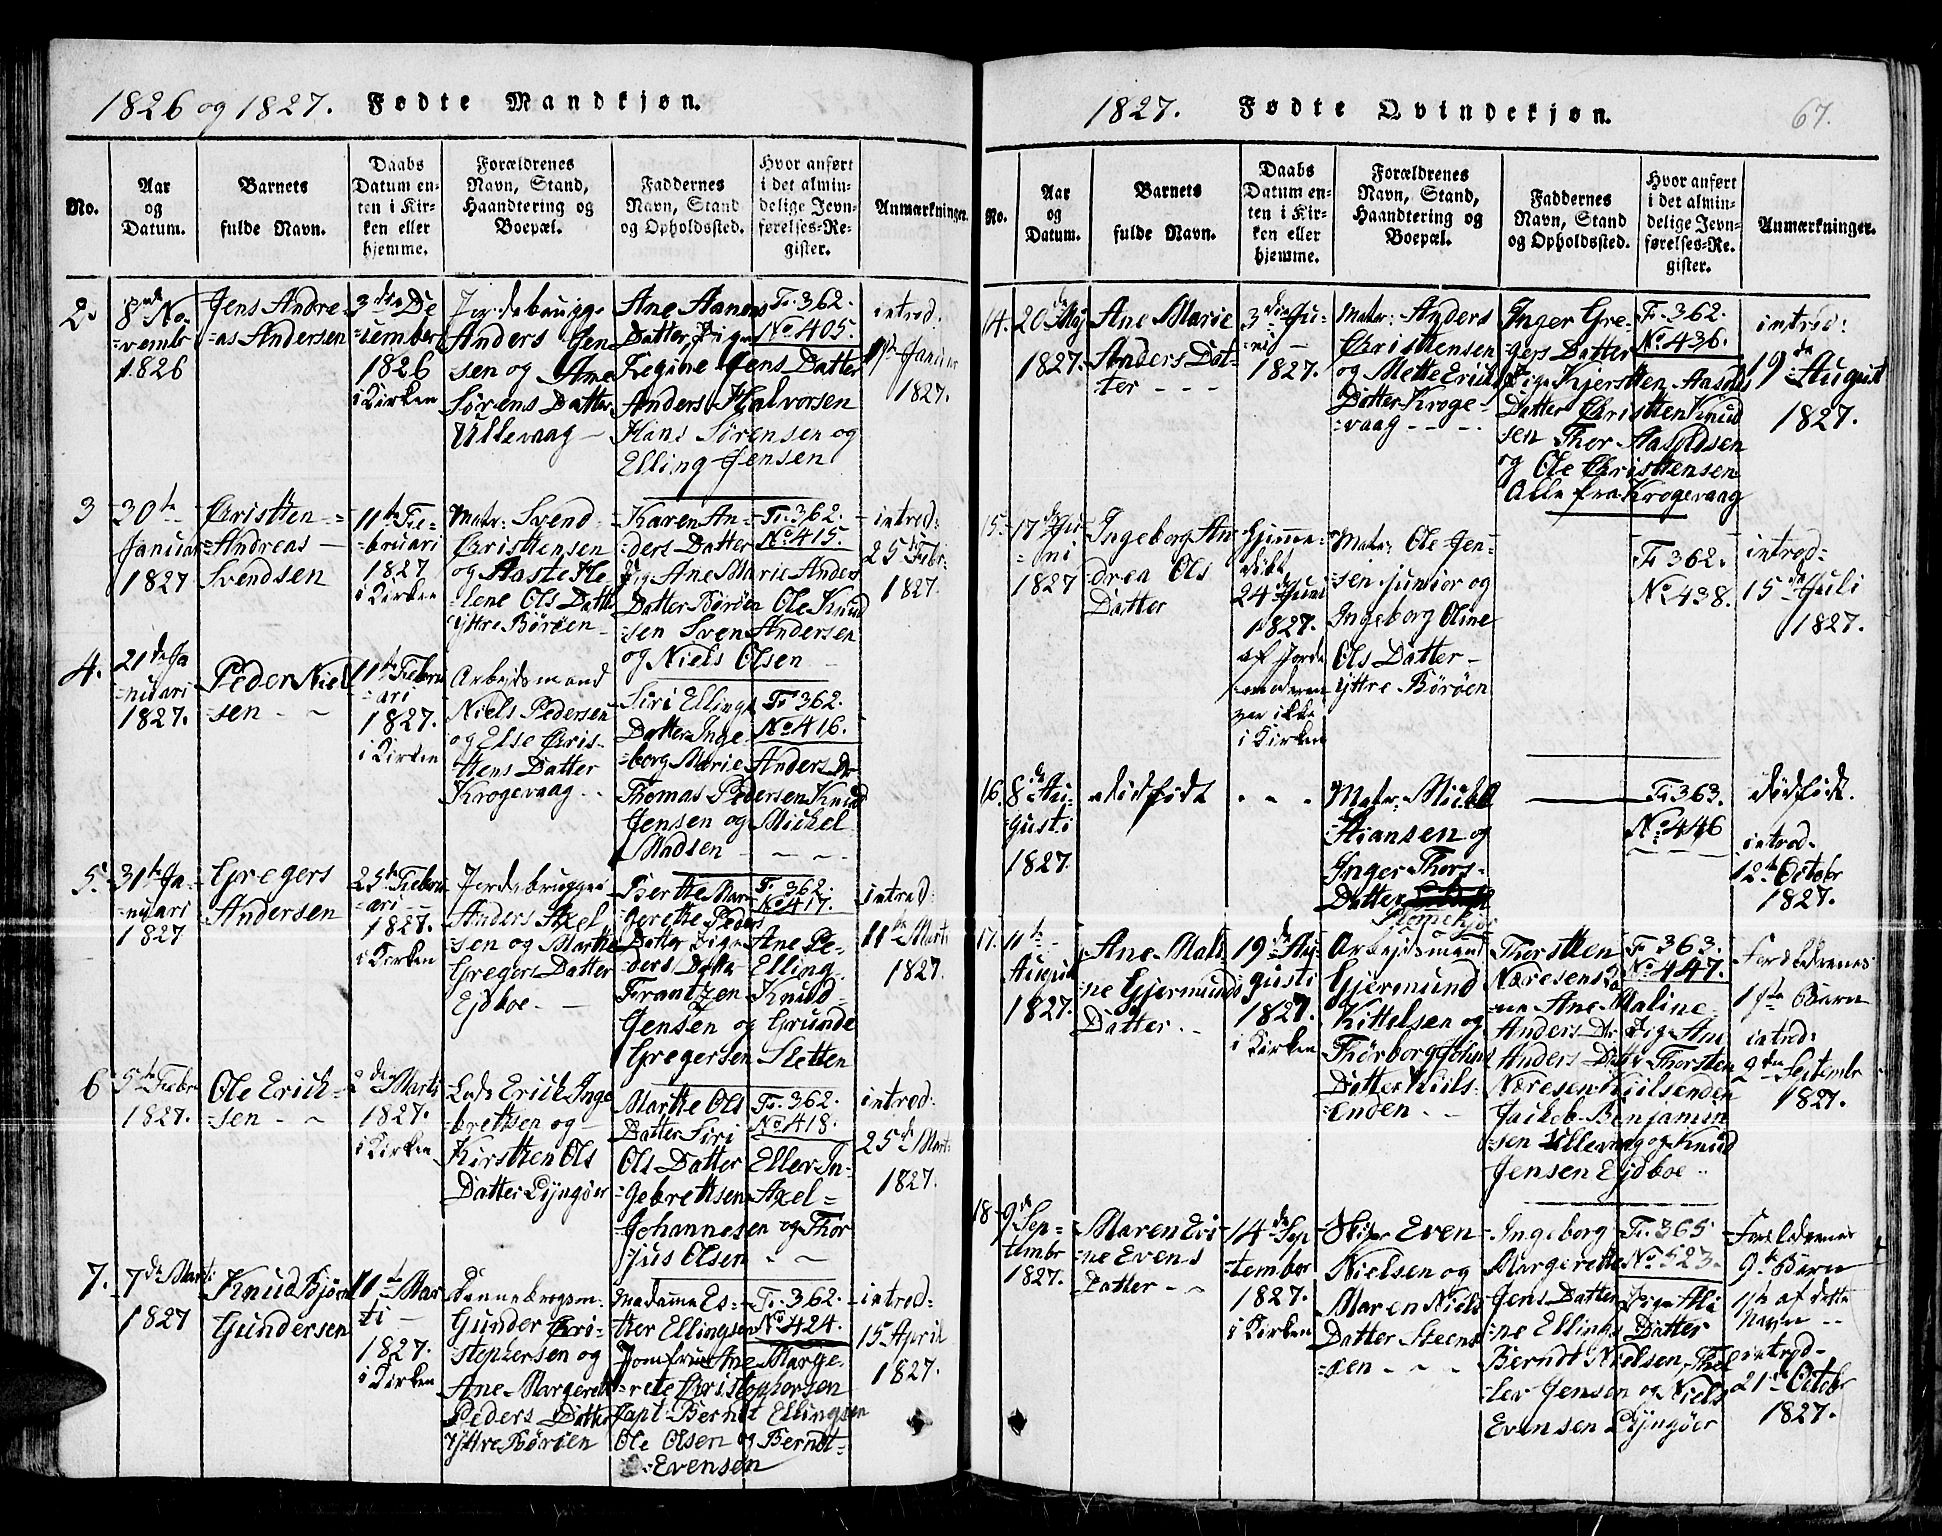 1826 og 1827. Fødte Mandkjøn.
No.
Aar
og
Datum.
Barnets
fulde Navn.
Daabs
Datum en-
ten i Kir-
ken eller
hjemme.
Forældrenes
Navn, Stand,
Haandtering og
Boepæl.
Faddernes
Navn, Stand
og Opholdssted.
Hvor anført
i det almin-
delige Jevn-
førelses-Re-
gister.
Anmærkninger.
2.
8de No-
=vembr
1826
Jens Andre
=as Andersen
3die De
=cember
1826
i Kirken
Anders Jen
sen og Ane
Sørens Datter
Ullevaag -
Ane Aanens
Datter Pige
Regine Jens Datter
Anders Halvorsen
Hans Sørensen og
Elling Jensen
F. 362.
No 405.
introd:
Januar
1827.
3
30te
Januar
1827
Christen =
=Andreas -
Svendsen
11te Fe-
=bruari
1827
i Kirken
Matr: Svend
Christensen
og Aaste He
=lene Ols Datter
Yttre Børøen-
Karen An-
=ders Datter
Pig Ane Marie Anders
Datter Børøen Ole Knud
=sen Sven Andersen
og Niels Olsen
F. 362.
No 415.
introd:
25de Febr.
1827.
4.
21de Ja
=nuari
1827.
Peder Niel
=sen - ~
11te Febru
=ari
1827.
i Kirken
Arbejdsmand
Niels Pedersen
og Else Chris-
tens Datter
Krogevaag -
Siri Ellings
Datter Inge-
=borg Marie Anders Dr
Thomas Pedersen Knud
Jensen og Mickel
Madsen
F. 362.
No 416.
5.
31te Ja-
=nuari
1827
Gregers
Andersen
25de Febru
=ari
1827.
i Kirken
Jordebrugger
Anders Axel
sen og Marthe
Gregers Datter
Ejdboe. -
Berthe Mar-
=grethe Peder
Datter Pige Ane Pe-
=ders Datter Elling
Frantzen Knud
Jensen og Grunde
Gregersen Sletten
F. 362.
No 417.
introd:
11te Marti
1827.
6
5te Febr
1827.
Ole Erick-
=sen - ~
2den Marti
1827.
i Kirken
Lods Erick Inge
=bretsen og -
Kirsten Ols
Datter Lyngøer
Marthe Ols
Datter Siri
Ols Datter Eller In-
=gebretsen Axel=
Johannesen og Thor
=jus Olsen
F. 362.
No 418.
introd:
25de Marti
1827.
7.
7de Marti
1827
Knud Bjørn
Gundersen
11te Mar
ti -
1827.
i Kirken
Dannebrogsm-
Gunder Chri-
stophersen og
Ane Margrethe
Peders Datter
Yttre Børøen
Madame Es-
=ther Ellingsen
Jomfrue Ane Marge-
=rete Christophersen
Capt. Berndt Ellingsen
Ole Olsen og Berndt=
=Evensen
F. 362.
No 424.
introd=
15 April
1827.
1827. Fødte Qvindekjøn. 67.
No.
Aar
og
Datum.
Barnets
fulde Navn.
Daabs
Datum en-
ten i Kir-
ken eller
hjemme.
Forældrenes
Navn, Stand,
Haandtering og
Boepæl.
Faddernes
Navn, Stand
og Opholdssted.
Hvor anført
i det almin-
delige Jevn-
førelses-Re-
gister.
Anmærkninger.
14.
20de Mj
1827.
Ane Marie
Anders Dat-
ter - - -
3die Ju-
ni -
1827.
Matr: Anders
Christensen
og Mette Ericks
Datter Kroge-
=vaag - - -
Inger Gre-
gers Datter
Pige Kjersten Aasolds
Datter Christen Knud
sen Thor Aasoldsen
og Ole Christensen
Alle fra Krogevaag
F. 362.
No 436.
introd:
19de August
1827.
15.
17de Ju
=ni
1827
Ingeborg An
drea Ols
Datter
Hjemme-
døbt
24de Juni
1827.
af Jorde
=moderen
var ikke
i Kirken
Matr: Ole Jen-
=sen junior og
Ingeborg Oline
Ols Datter -
Yttre Børøen
F. 362.
No 438.
introd=
15de Juli
1827.
16.
8de Au-
=gusti
1827.
dødfødt
- - -
Matr: Mickel
Hansen og
Inger Thors-
Datter
F. 363.
No 446
dødfødt.
introd=
12te Octobr
1827.
17.
11te
August
1827.
Ane Mali-
ne Gjermunds
Datter - -
19de Au-
gusti
1827.
i Kirken
Arbejdsmand
Gjermund
Kittelsen og
Thorborg Johns
Datter Kiils-
=enden - -
Thorsten
Næresens Ko
ne Ane Maline
Anders Dr Pige Ane
Anders Dr Thorsten
Næresen Kiilsenden
Jacob Benjamin
=sen Ullevaag og Knud
Jensen Ejdboe -
F. 363.
No 447.
Forældrenes
1ste Barn
introd:
9den Septembr
1827.
18
9de Sep=
tembr
1827.
Maren Evi
=ne Evens
Datter - -
14de Sep
=tember
1827.
i Kirken
Skiper Even
Nielsen og
Maren Niels
Datter Steens
=øen - - -
Ingeborg
Margerethe
Jens Datter Pige Ali
=ne Ellings Datter
Berndt Nielsen, Thel
lev Jensen og Niels
Evensen Lyngøer
F. 365
No 523.
Forældrenes
9de Barn
11te af dette
Navn - -
introd=
21de Octobr
1827.